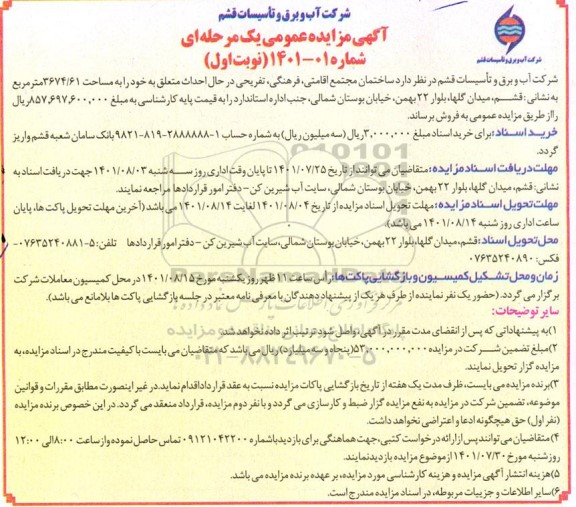 شرکت آب و برق و تأسیسات قشم
آگهی مزایده عمومی یک مرحله‌ای
شماره ۰۱-۱۴۰۱ (نوبت اول)
شرکت آب و برق و تأسیسات قشم
شرکت آب و برق و تأسیسات قشم در نظر دارد ساختمان مجتمع اقامتی، فرهنگی، تفریحی در حال احداث متعلق به خود را به مساحت ۳۶۷۴/۶۱ مترمربع
به نشانی: قشم، میدان گلها، بلوار ۲۲ بهمن، خیابان بوستان شمالی، جنب اداره استاندارد را به قیمت پایه کارشناسی به مبلغ ۸۵۷,۶۹۷,۶۰۰,۰۰۰ ریال
را از طریق مزایده عمومی به فروش برساند.
خرید اسناد: برای خرید اسناد مبلغ ۳,۰۰۰,۰۰۰ ریال (سه میلیون ریال) به شماره حساب ۱-۲۸۸۸۸۸۸-۸۱۹-۹۸۲۱ بانک سامان شعبه قشم واریز
گردد.
مهلت دریافت اسناد مزایده: متقاضیان می‌توانند از تاریخ ۱۴۰۱/۰۷/۲۵ تا پایان وقت اداری روز سه شنبه ۱۴۰۱/۰۸/۰۳ جهت دریافت اسناد به
نشانی: قشم، میدان گلها، بلوار ۲۲ بهمن، خیابان بوستان شمالی، سایت آب شیرین کن - دفتر امور قراردادها مراجعه نمایند.
مهلت تحویل اسناد مزایده: مهلت تحویل اسناد مزایده از تاریخ ۱۴۰۱/۰۸/۰۴ لغایت ۱۴۰۱/۰۸/۱۴ می باشد (آخرین مهلت تحویل پاکت ها، پایان
ساعت اداری روز شنبه ۱۴۰۱/۰۸/۱۴ می باشد)
محل تحویل اسناد: قشم، میدان گلها، بلوار ۲۲ بهمن، خیابان بوستان شمالی، سایت آب شیرین کن - دفتر امور قراردادها تلفن: ۵-۰۷۶۳۵۲۴۰۸۸۱ -
فکس: ۰۷۶۳۵۲۴۰۸۹۰
زمان و محل تشکیل کمیسیون و بازگشایی پاکت ها: راس ساعت ۱۱ ظهر روز یکشنبه مورخ ۱۴۰۱/۰۸/۱۵ در محل کمیسیون معاملات شرکت
برگزار می گردد. (حضور یک نفر نماینده از طرف هر یک از پیشنهاد دهندگان با معرفی نامه معتبر در جلسه بازگشایی پاکت ها بلامانع می باشد).
سایر توضیحات:
۱) به پیشنهاداتی که پس از انقضای مدت مقرر در آگهی، واصل شود ترتیب اثر داده نخواهد شد.
۲) مبلغ تضمین شرکت در مزایده ۵۳,۰۰۰,۰۰۰,۰۰۰ (پنجاه و سه میلیارد) ریال می باشد که متقاضیان می بایست با کیفیت مندرج در اسناد مزایده، به
مزایده گزار تحویل نمایند.
۳) برنده مزایده می بایست، ظرف مدت یک هفته از تاریخ بازگشایی پاکات مزایده نسبت به عقد قرارداد اقدام نماید. در غیر اینصورت مطابق مقررات و قوانین
موضوعه، تضمین شرکت در مزایده به نفع مزایده گزار ضبط و کارسازی می گردد و با نفر دوم مزایده، قرارداد منعقد می گردد. در این خصوص برنده مزایده
(نفر اول) حق هیچگونه ادعا و اعتراضی نخواهد داشت.
۴) متقاضیان می توانند پس از ارائه درخواست کتبی، جهت هماهنگی برای بازدید با شماره ۰۹۱۲۱۰۴۲۲۰۰ تماس حاصل نموده و از ساعت ۸:۰۰ الی ۱۲:۰۰
روز شنبه مورخ ۱۴۰۱/۰۷/۳۰ از موضوع مزایده بازدید نمایند.
۵) هزینه انتشار آگهی مزایده و هزینه کارشناسی مورد مزایده، بر عهده برنده مزایده می باشد.
۶) سایر اطلاعات و جزییات مربوطه، در اسناد مزایده مندرج است.